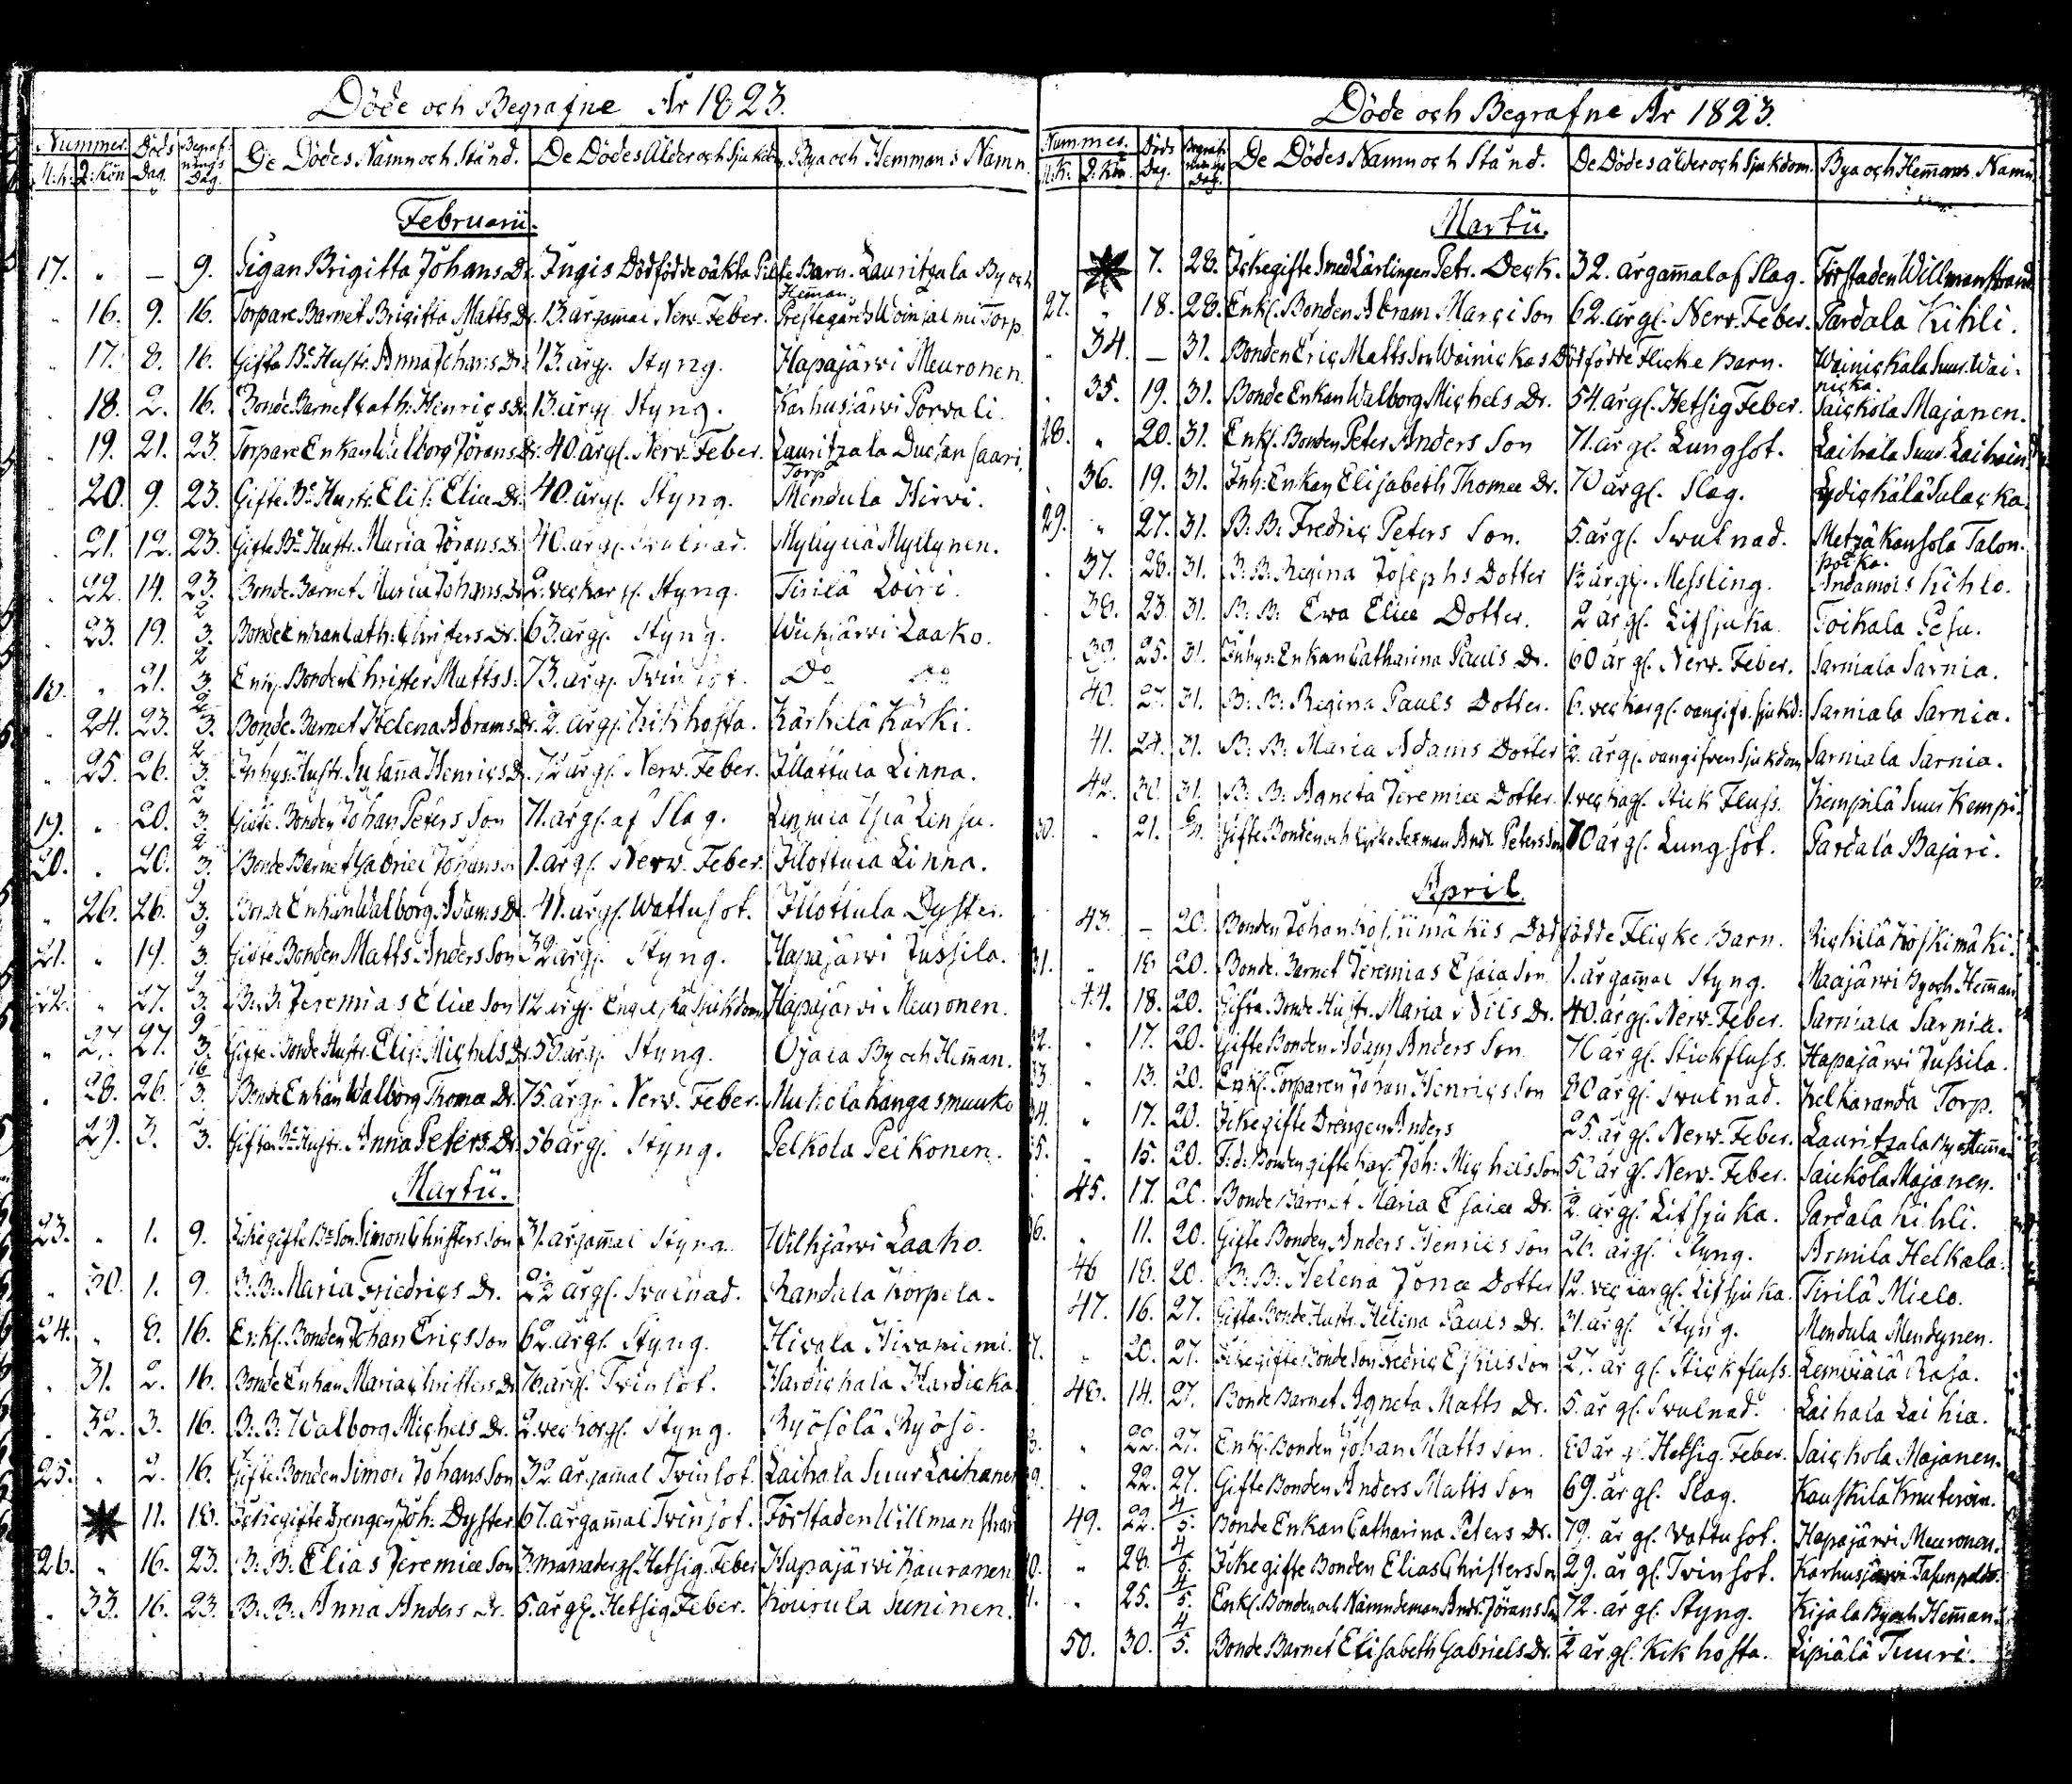 Döde och Begrafne År 1823.
Nummer. Döds Dag. Begrafnings Dag. De Dödes Namn och Stånd. De Dödes Ålder och Sjukdom Bya och Hemmans Namn.
M.k. Q.Kön
Februarii.
17. " — 9. Pigan Brigitta Johans Dr. Ingis Dödfödde oäkta Barn. Lauritzala By och Hem̄an.
" 16. 9. 16. Torpare Barnet Brigitta Matts Dr. 13. årgammal Nerv. Feber. Torp.
" 17. 8. 16. Gifta Be Hustr. Anna Johans Dr. årgl. Styng. Hapajärvi Meuronen.
" 18. 2. 16. Bonde Barnet Cath: Hinrics Dr. årgl. Styng. Karhusjärvi Porvali.
" 19. 21. 23. Torpare Enkan Walborg Jörans Dr. 40. årgl. Nerv. Feber. Lauritzala Torp
" 20. 9. 23. Gifte Be Hustr. Elis: Eliæ Dr. 40. årgl. Styng. Mendula Hirvi.
" 21. 12. 23. Gifte Be Hustr. Maria Jörans Dr. 40. årgl. Svulnad. Myllylä Myllynen.
" 22. 14. 23. Bonde Barnet Maria Johans Dr. 2. veckor gl. Styng. Tirilä Loiri.
" 23. 19. 2/3. Bonde Enkan Cath: Christers Dr. 63. årgl. Styng. Laako.
18. " 21. 2/3. Enkl. Bonden Christer Matts S: 73. årgl. Tvinsot. Do Do
" 24. 23. 2/3. Bonde Barnet Helena Abrams Dr. 2. årgl. Kikhosta. Kärkelä Kärki.
" 25. 26. 2/3. Inhys: Hustr. Susan̄a Henrics Dr. 72 årgl. Nerv. Feber. Illottula Linna.
19. " 20. 2/3. Gifte Bonden Johan Peters Son 71. årgl. af Slag.
20. " 20. 2/3. Bonde Barnet Gabriel Johans 1. årgl. Nerv. Feber. Illottula Linna.
" 26. 26. 9/3. Bonde Enkan Walborg Adams Dr. 41. årgl. Wattusot. Illottula Dyster.
21. " 19. 9/3. Gifte Bonden Matts Anders Son 32 årgl. Styng. Hapajärvi Jussila.
22. " 27. 9/3. B: B: Jeremias Eliæ Son 12 årgl. Engelska Sjukdom Hapajärvi Meuronen.
" 27. 27. 9/3. Gifte Bonde Hustr. Elis: Michels Dr. 55. årgl. Styng. Ojala By och Hem̄an.
" 28. 26. 16/3. Bonde Enkan Walborg Thomæ Dr. 75. årgl. Nerv. Feber. Mukola Kangasmuuko
29. 3. 3. Gifta Be Hustr. Anna Peters Dr. 56 årgl. Styng. Pelkola Pelkonen.
Martii.
23. " 1. 9. Ickegifte Be Son Simon Christers Son 31. årgam̄al Styng. Wilkjärvi Laako.
" 30. 1. 9. B: B: Maria Friedrics Dr. årgl. Svulnad. Randala Korpela.
24. " 8. 16. Enkl. Bonden Johan Erics Son 62. årgl. Styng. Hivala Hivaniemi.
" 31. 2. 16. Bonde Enkan Maria Christers Dr. 76. årgl. Tvinsot. Hardickala Hardicka.
" 32. 3. 16. B: B: Walborg Michels Dr. 2. veckorgl. Styng. Ryösölä Ryösö.
25. " 2. 16. Gifte Bonden Simon Johans Son 32. årgam̄al Tvinsot. Laihala Suur Laihanen
11. 18. Ickegifte Drengen Joh: Dyster 61. årgam̄al Tvinsot. Förstaden Willmanstrand
26. " 16. 23. B: B: Elias Jeremiæ Son 3. månadergl. Hetsig Feber Hapajärvi Kauranen
" 33. 16. 23. B: B: Anna Anders Dr. 5. årgl. Hetsig Feber. Kourula Suninen.
Döde och Begrafne År 1823.
Nummer. Döds Dag. Begrafnings Dag. De Dödes Namn och Stånd. De Dödes ålder och Sjukdom. Bya och Hem̄ans Namn.
M.K. Q.Kön
Martii.
7. 28. Ickegifte Smed Lärlingen Petr. Deck. 32. årgam̄al af Slag. Förstaden Willmanstrand
27. " 18. 28. Enkl. Bonden Abram Marci Son 62. årgl. Nerv. Feber. Pardala Kihli.
" 34. — 31. Bonden Eric Matts Son Wainickas Dödfödde Flicke Barn. Wainickala Suur Wainicka.
" 35. 19. 31. Bonde Enkan Walborg Michels Dr. 54. årgl. Hetsig Feber. Saickola Majanen.
28. " 20. 31. Enkl. Bonden Peter Anders Son 71. årgl. Lungsot. Laihala Suur Laihain
" 36. 19. 31. Inh: Enkan Elisabeth Thomæ Dr. 70 årgl. Slag.
29. " 27. 31. B: B: Fredric Peters Son. 5. årgl. Svulnad. Metzäkansola Talonpoika.
" 37. 28. 31. B: B: Regina Josephs Dotter årgl. Messling. Kihlo.
" 38. 23. 31. B: B: Ewa Eliæ Dotter. 2 årgl. Litsjuka. Toikala Pesu.
39. 25. 31. Inhys: Enkan Catharina Pauls Dr. 60 årgl. Nerv. Feber. Sarniala Sarnia.
40. 27. 31. B: B: Regina Pauls Dotter. 6. veckorgl. oangifv. Sjukd: Sarniala Sarnia.
41. 24. 31. B: B: Maria Adams Dotter årgl. oangifven Sjukdom Sarniala Sarnia.
42. 30. 31. B: B: Agneta Jeremiæ Dotter. 1. veckagl. Stick Fluss. Kempilä Suur Kempi.
30. " 21. Gifte Bonden och Kyrko Sexman Andr. Peters Son 70 årgl. Lungsot. Pardala Bajari.
April.
43. — 20. Bonden Johan Koskimäkis Dödfödde Flicke Barn. Rickilä Koskimäki.
31. " 18 20. Bonde Barnet Jeremias Esaiæ Son 1. årgam̄al Styng. Maajärvi By och Hem̄an
44. 18. 20. Gifta Bonde Hustr. Maria Nils Dr. 40. årgl. Nerv. Feber. Sarniala Sarnia.
32. " 17. 20. Gifte Bonden Adam Anders Son 70 årgl. Stickfluss. Hapajärvi Jussila.
33. " 13. 20. Enkl. Torparen Johan Henrics Son 80 årgl. Svulnad. Kelkaranda Torp.
34. " 17. 20. Ickegifte Drengen Anders 25. årgl. Nerv. Feber. Lauritzala By o Hem̄an
35. " 15. 20. F: d: Bonden gifte karl Joh: Michels Son årgl. Nerv. Feber. Saickola Majanen.
45. 17. 20. Bonde Barnet Maria Esaiæ Dr. årgl. Litsjuka. Pardala Kihli.
36. " 11. 20. Gifte Bonden Anders Henrics Son 26. årgl. Styng. Armila Helkala.
46 18. 20. B: B: Helena Jonæ Dotter 12. veckorgl. Litsjuka. Tirilä Mielo.
47. 16. 27. Gifta Bonde Hustr. Helena Pauls Dr. 31. årgl. Styng. Mendula Mendynen.
37. " 20. 27. Ickegifte Bonde Son Fredric Eskils Son 27. årgl. Stickfluss. Rasa.
48. 14. 27. Bonde Barnet Agneta Matts Dr. 5. årgl. Svulnad. Laihala Laihia.
38. " 22. 27. Enkl. Bonden Johan Matts Son. 60 årgl. Hetsig Feber. Saickola Majanen.
39. " 22. 27. Gifte Bonden Anders Matts Son 69. årgl. Slag. Kauskila
49. 22. 4/5. Bonde Enkan Catharina Peters Dr. 79. årgl. Vattusot. Hapajärvi Meuronen.
40. " 28. 4/5. Ickegifte Bonden Elias Christers Son 29. årgl. Tvinsot. Karhusjärvi
41. " 25. 4/5. Enkl. Bonden och Nämndeman Andr. Jörans Son 72. årgl. Styng. Kijala By och Hem̄an.
50. 30. 4/5. Bonde Barnet Elisabeth Gabriels Dr. 1/2 årgl. Kikhosta. Lipiälä Tuuri.